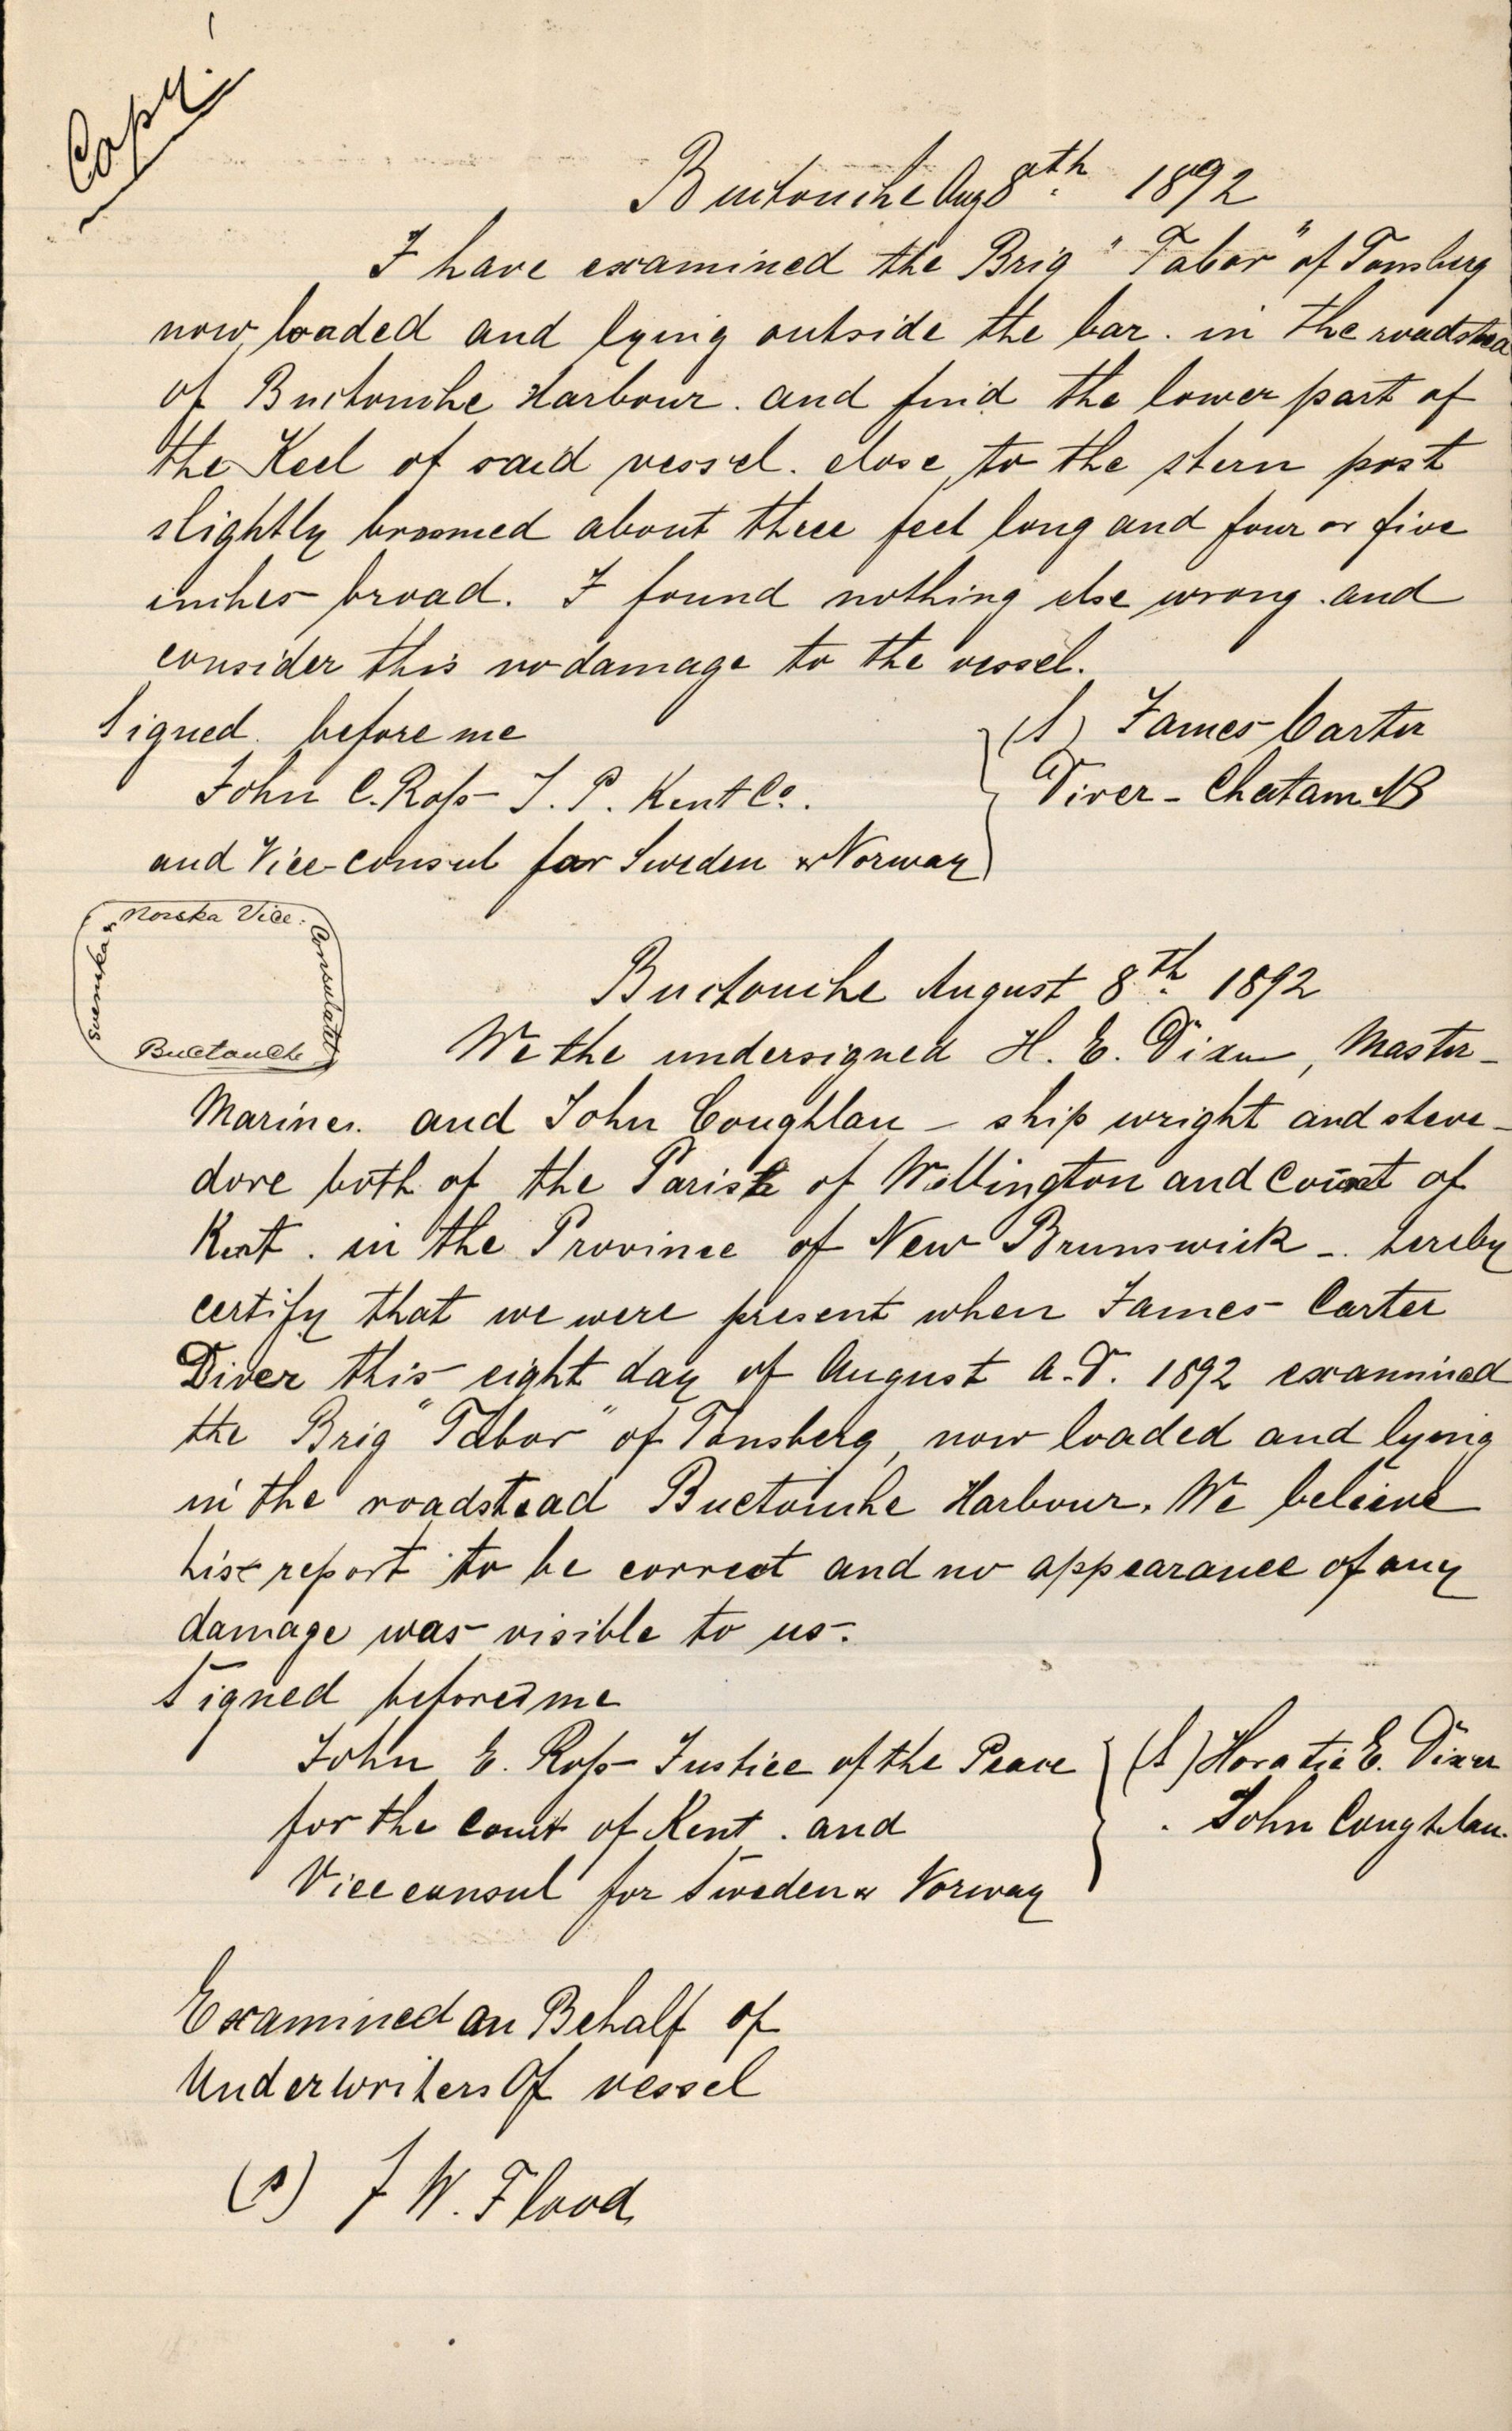 Copy.
Buctouche Aug 8th 1892
I have examined the Brig "Tabor" of Tonsberg
now loaded and lying outside the bar. in the roadstead
of Buctouche Harbour. and find the lower part of
the Keel of said vessel. close to the stern post
slightly broomed about three feet long and four or five
inches broad. I found nothing else wrong and
consider this no damage to the vessel.
Signed before me
(S) James Carter
John C. Ross J. P. Kent Co.
Diver - Chatam NB
and Vice-consul for Sweden & Norway
Svenska & Norska Vice Consulatet
Buctouche
Buctouche August 8th 1892
We the undersigned H. E. Dixon, Master-
Mariner and John Coughlan - ship wright and steve-
dore both of the Parish of Wellington and Count of
Kent. in the Province of New Brunswick - hereby
certify that we were present when James Carter
Diver this eight day of August A.D. 1892 examined
the Brig "Tabor" of Tonsberg, now loaded and lying
in the roadstead Buctouche Harbour. We believe
his report to be correct and no appearance of any
damage was visible to us.
Signed before me
John E. Ross Justice of the Peace
(S) Horatio E. Dixon
for the Count of Kent. and
John Coughlan.
Vice consul for Sweden & Norway
Examined on Behalf of
Underwriters Of vessel
(s) J W. Flood